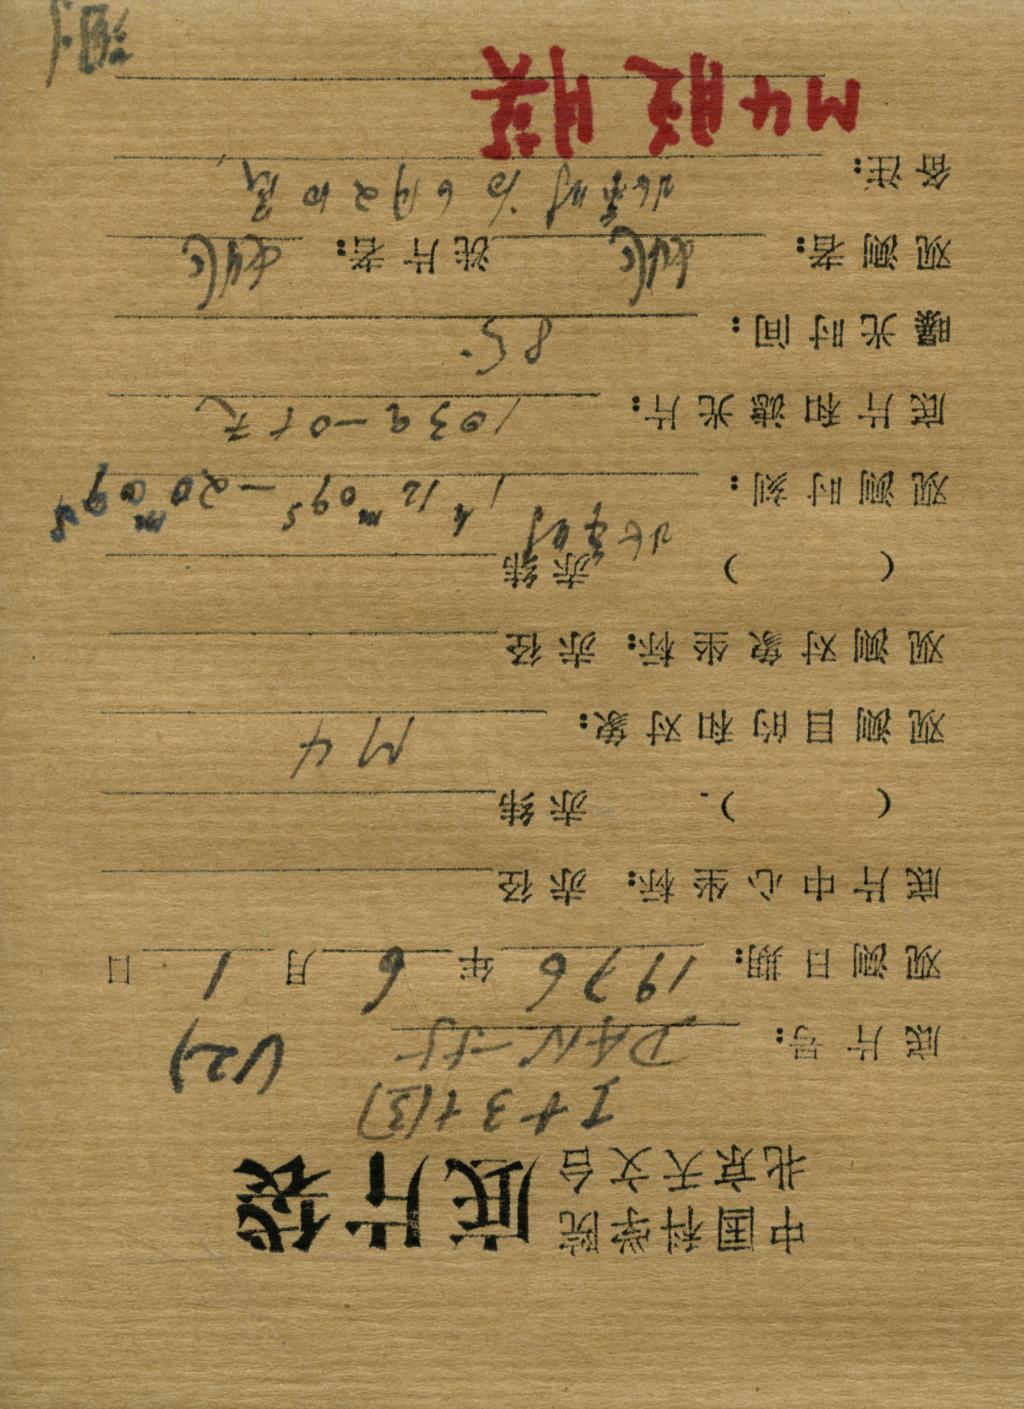 中国科学院
北京天文台
底片袋
I+3+(3)
底片号: (2)
观测日期: 1976年6月1日
底片中心坐标: 赤径
( ) 赤纬
观测目的和对象: M4
观测对象坐标: 赤径
( ) 赤纬
北京时
观测时刻: 1h12m09s—20m09s
底片和滤光片: 103a-O+无
曝光时间: 8s.
观测者: 洗片者:
备注: 北京时为6月2日晨
M4胶膜